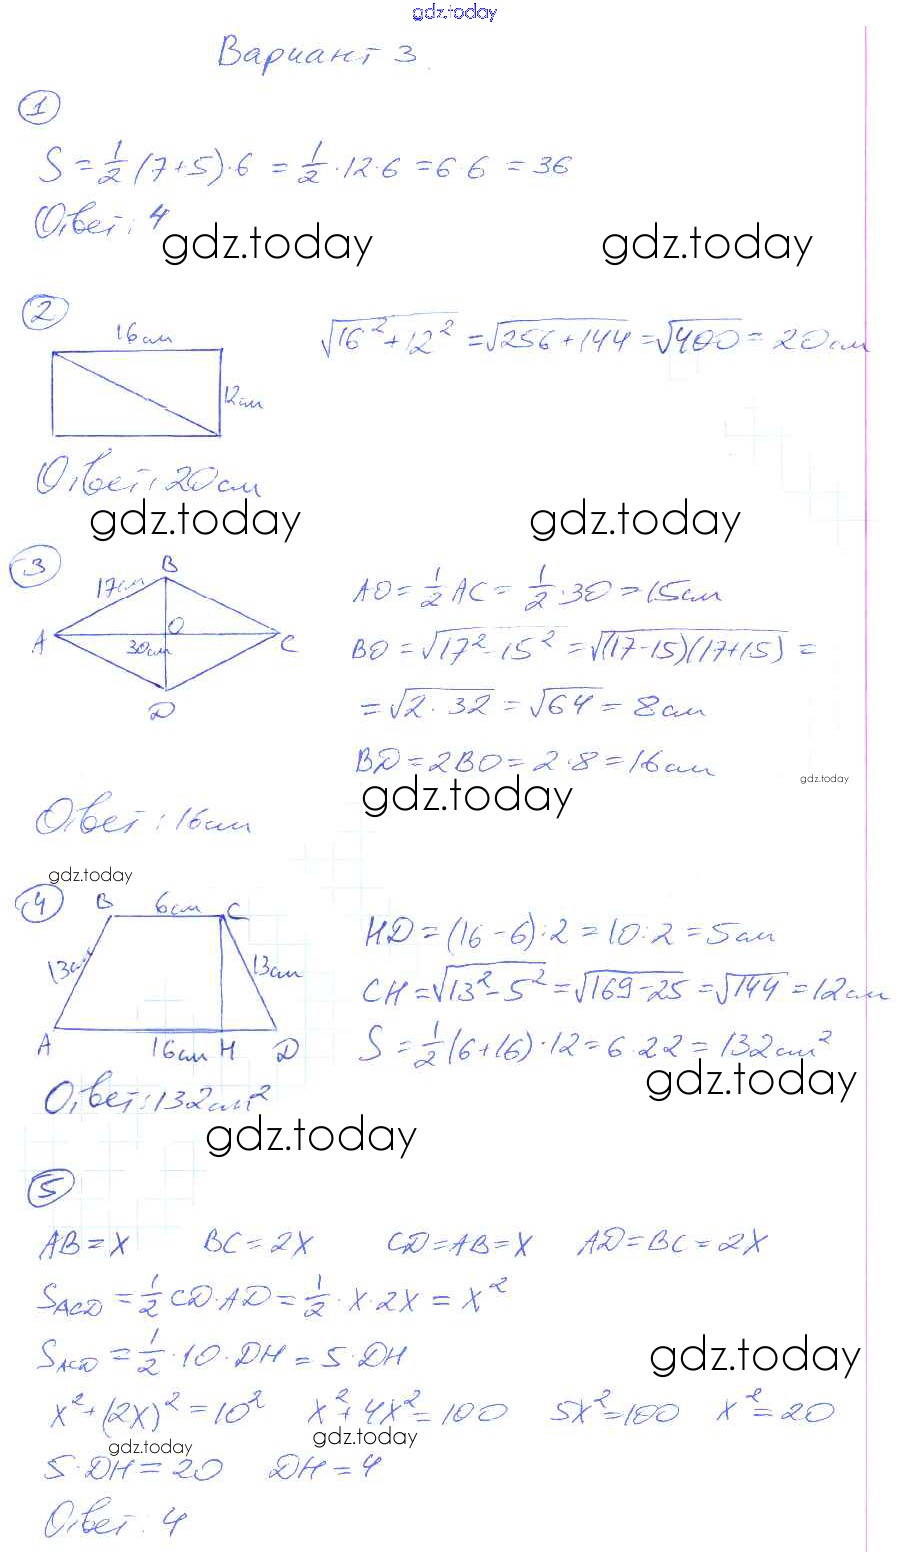 gdz.today
Вариант 3
1
S = 1/2 (7+5)·6 = 1/2 ·12·6 = 6·6 = 36
Ответ: 4
gdz.today gdz.today
2
16 см
12 см
√(16²+12²) = √(256+144) = √400 = 20 см
Ответ: 20 см
gdz.today gdz.today
3
B
17 см
A
O
30 см
C
D
AO = 1/2 AC = 1/2 ·30 = 15 см
BO = √(17²-15²) = √((17-15)(17+15)) =
= √(2·32) = √64 = 8 см
BD = 2BO = 2·8 = 16 см
gdz.today gdz.today
Ответ: 16 см
gdz.today
4
B 6 см C
13 см 13 см
A 16 см H D
HD = (16-6):2 = 10:2 = 5 см
CH = √(13²-5²) = √(169-25) = √144 = 12 см
S = 1/2 (6+16)·12 = 6·22 = 132 см²
gdz.today
Ответ: 132 см²
gdz.today
5
AB = x BC = 2x CD = AB = x AD = BC = 2x
S_ACD = 1/2 CD·AD = 1/2 ·x·2x = x²
S_ACD = 1/2 ·10·DH = 5·DH
gdz.today
x²+(2x)² = 10² x²+4x² = 100 5x² = 100 x² = 20
gdz.today gdz.today
5·DH = 20 DH = 4
Ответ: 4